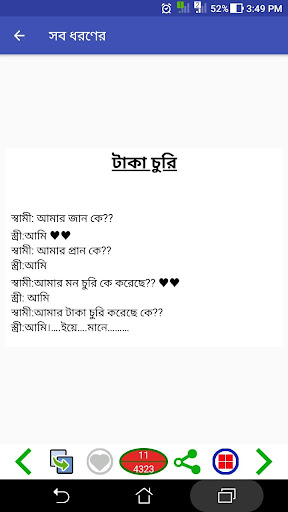 52% 3:49 PM
সব ধরণের
টাকা চুরি
স্বামী: আমার জান কে??
স্ত্রী:আমি ♥♥
স্বামী: আমার প্রান কে??
স্ত্রী:আমি
স্বামী:আমার মন চুরি কে করেছে?? ♥♥
স্ত্রী: আমি
স্বামী:আমার টাকা চুরি করেছে কে??
স্ত্রী:আমি।....ইয়ে....মানে.........
11
4323